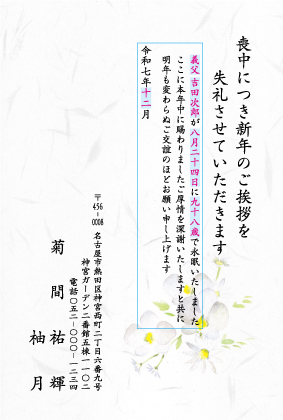 喪中につき新年のご挨拶を
失礼させていただきます
義父 吉田次郎が八月二十四日に九十八歳で永眠いたしました
ここに本年中に賜わりましたご厚情を深謝いたしますと共に
明年も変わらぬご交誼のほどお願い申し上げます
令和七年十二月
〒456-0008
名古屋市熱田区神宮西町二丁目六番九号
神宮ガーデン二番館五棟一一〇二
電話〇五二-〇〇〇-一二三四
菊間祐輝
柚月